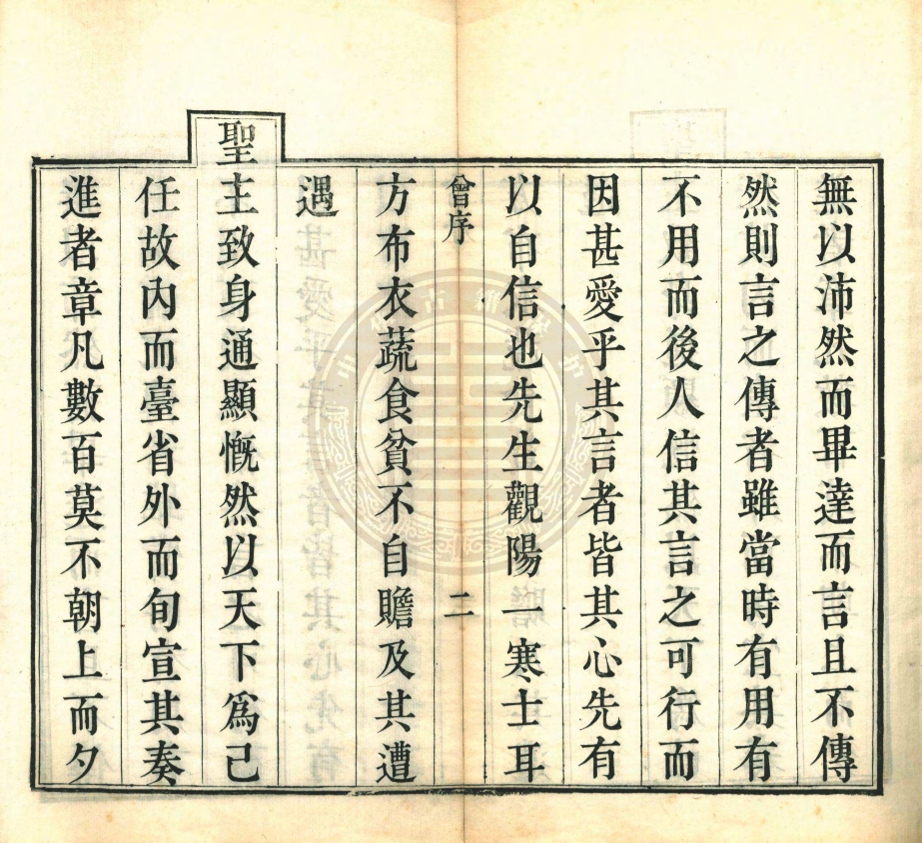 無以沛然而畢達而言且不傳
然則言之傳者雖當時有用有
不用而後人信其言之可行而
因甚愛乎其言者皆其心先有
以自信也先生觀陽一寒士耳
曾序
二
方布衣蔬食貧不自贍及其遭
遇
聖主致身通顯慨然以天下爲己
任故內而臺省外而旬宣其奏
進者章凡數百莫不朝上而夕